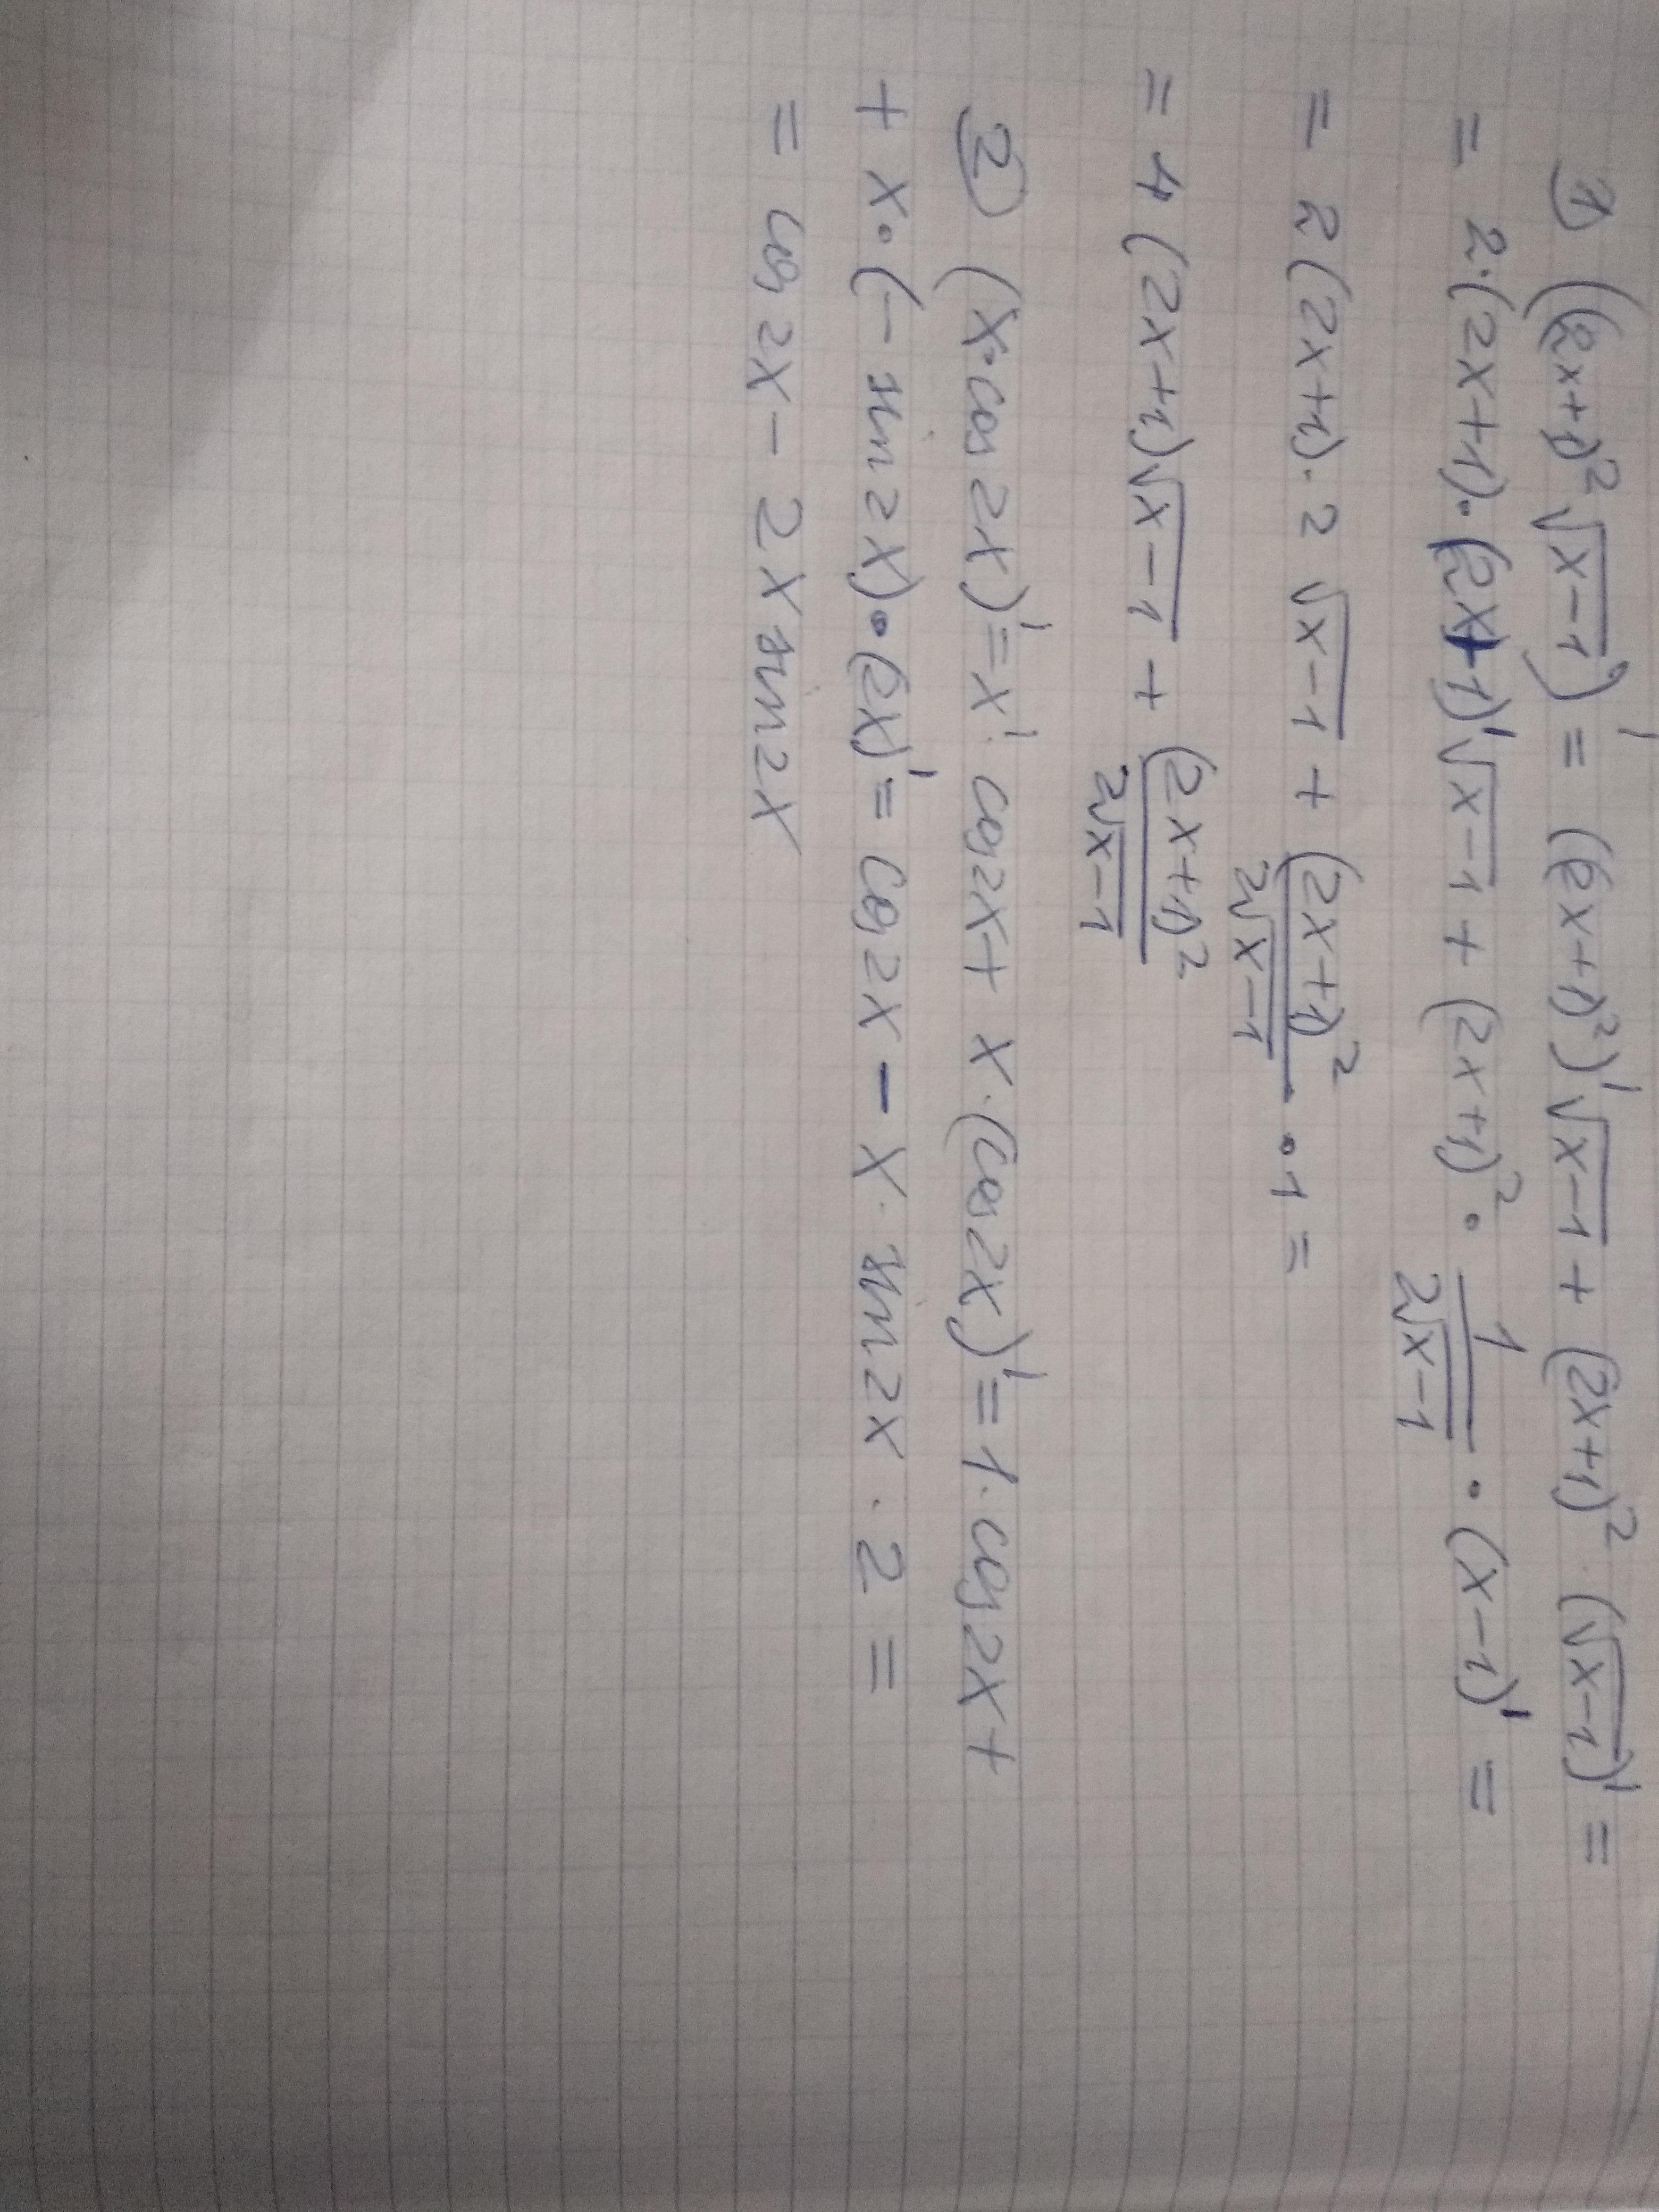 1) ((2x+1)²√(x-1))' = ((2x+1)²)'√(x-1) + (2x+1)² · (√(x-1))' =
= 2·(2x+1)·(2x+1)'√(x-1) + (2x+1)² · 1/(2√(x-1)) · (x-1)' =
= 2(2x+1)·2√(x-1) + (2x+1)²/(2√(x-1)) · 1 =
= 4(2x+1)√(x-1) + (2x+1)²/(2√(x-1))
2) (x·cos2x)' = x'·cos2x + x·(cos2x)' = 1·cos2x +
+ x·(-sin2x)·(2x)' = cos2x - x·sin2x·2 =
= cos2x - 2x sin2x